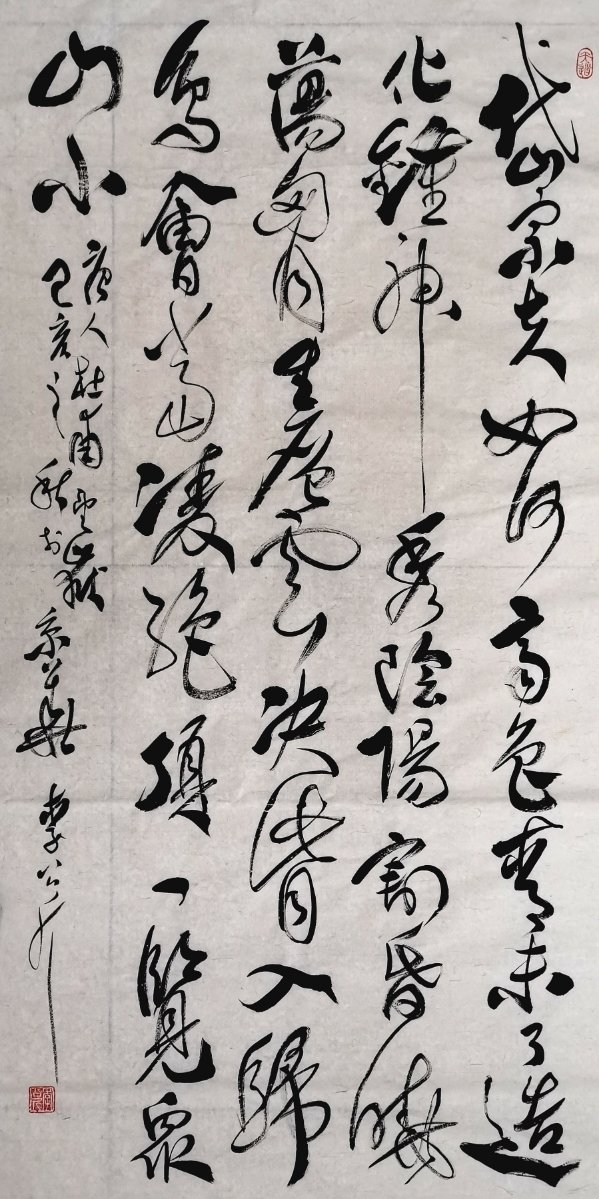 岱宗夫如何齊魯青未了造
化鍾神秀陰陽割昏曉
蕩胸生層雲決眥入歸
鳥會當凌絕頂一覽衆
山小
唐人杜甫望嶽
己亥之秋於京華 李公